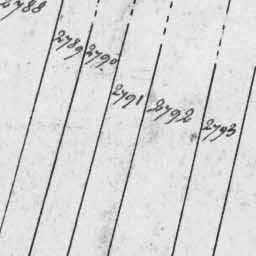 2788
2789
2790
2791
2792
2793